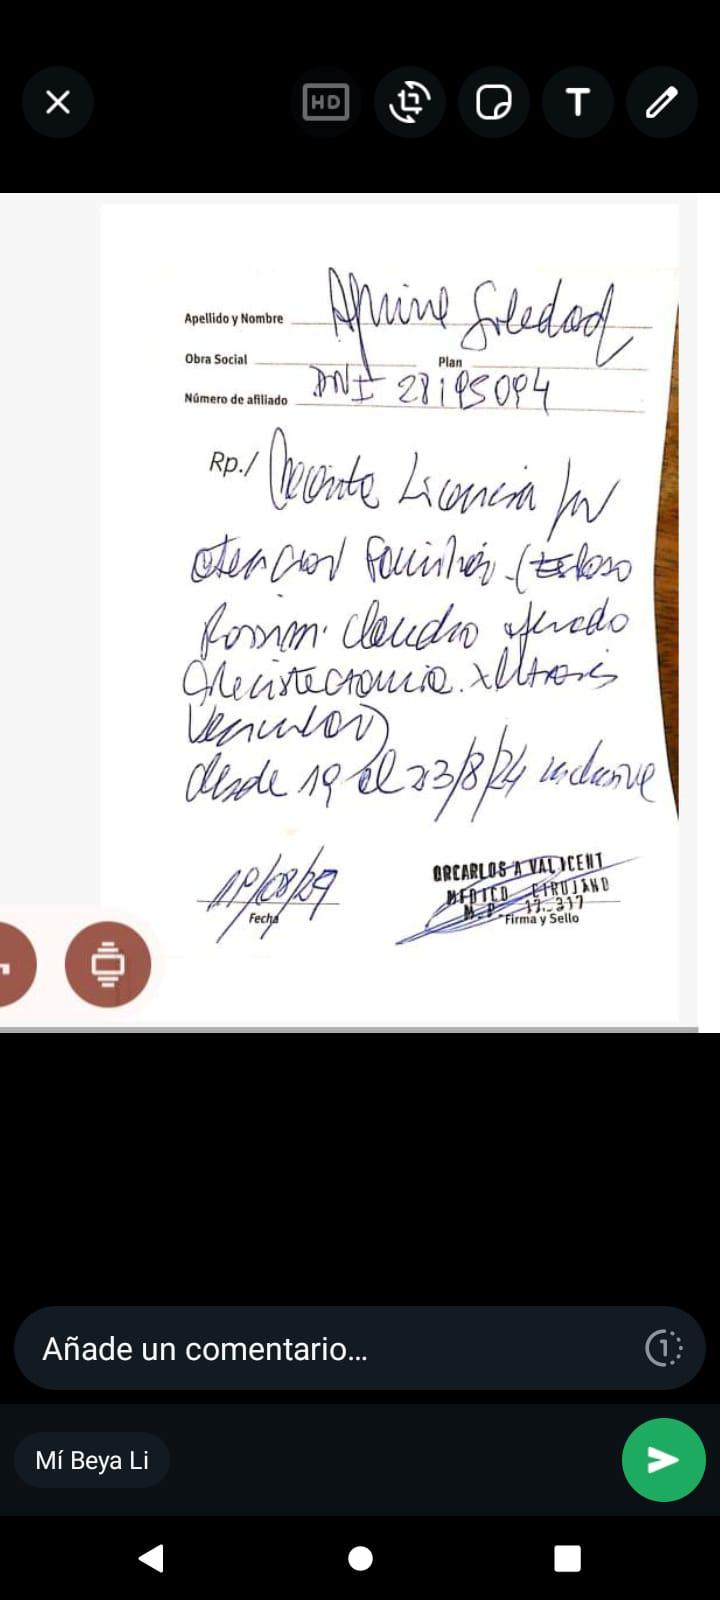 HD
T
Apellido y Nombre Soledad
Obra Social Plan
Número de afiliado DNI 28195094
Rp./ Licencia por
atencion familiar (Esposo
Claudio operado
Colecistectomia x litiasis
vesicular)
desde 19 al 23/8/24 inclusive
19/08/24
Fecha
MEDICO CIRUJANO
M.P. 17.317
Firma y Sello
Añade un comentario...
1
Mí Beya Li